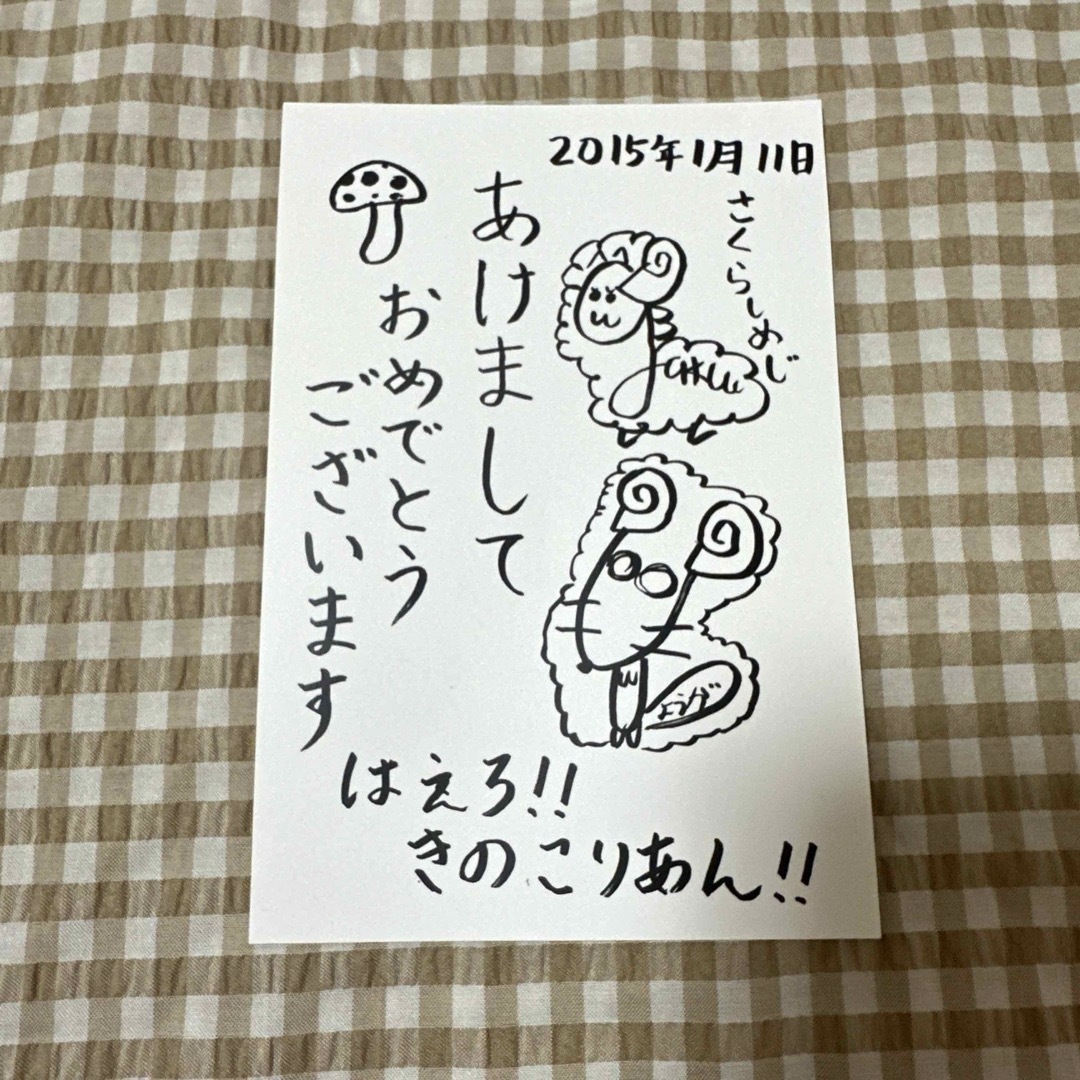 2015年1月11日
さくらしめじ
あけまして
おめでとう
ございます
はえろ!!
きのこりあん!!